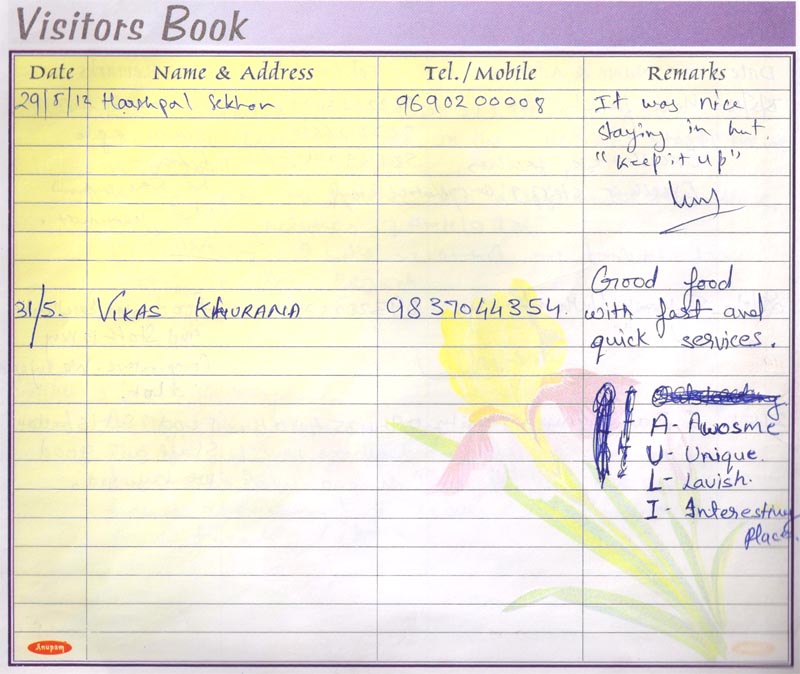 Visitors Book
Date Name & Address Tel./Mobile Remarks
29/5/12 Harshpal Sekhon 9690200008 It was nice
staying in hut.
"keep it up"
Good food
31/5. VIKAS KHURANA 9837044354. with fast and
quick services.
A - Awosme
U - Unique.
L - Lavish.
I - Interesting
Place.
Anupam